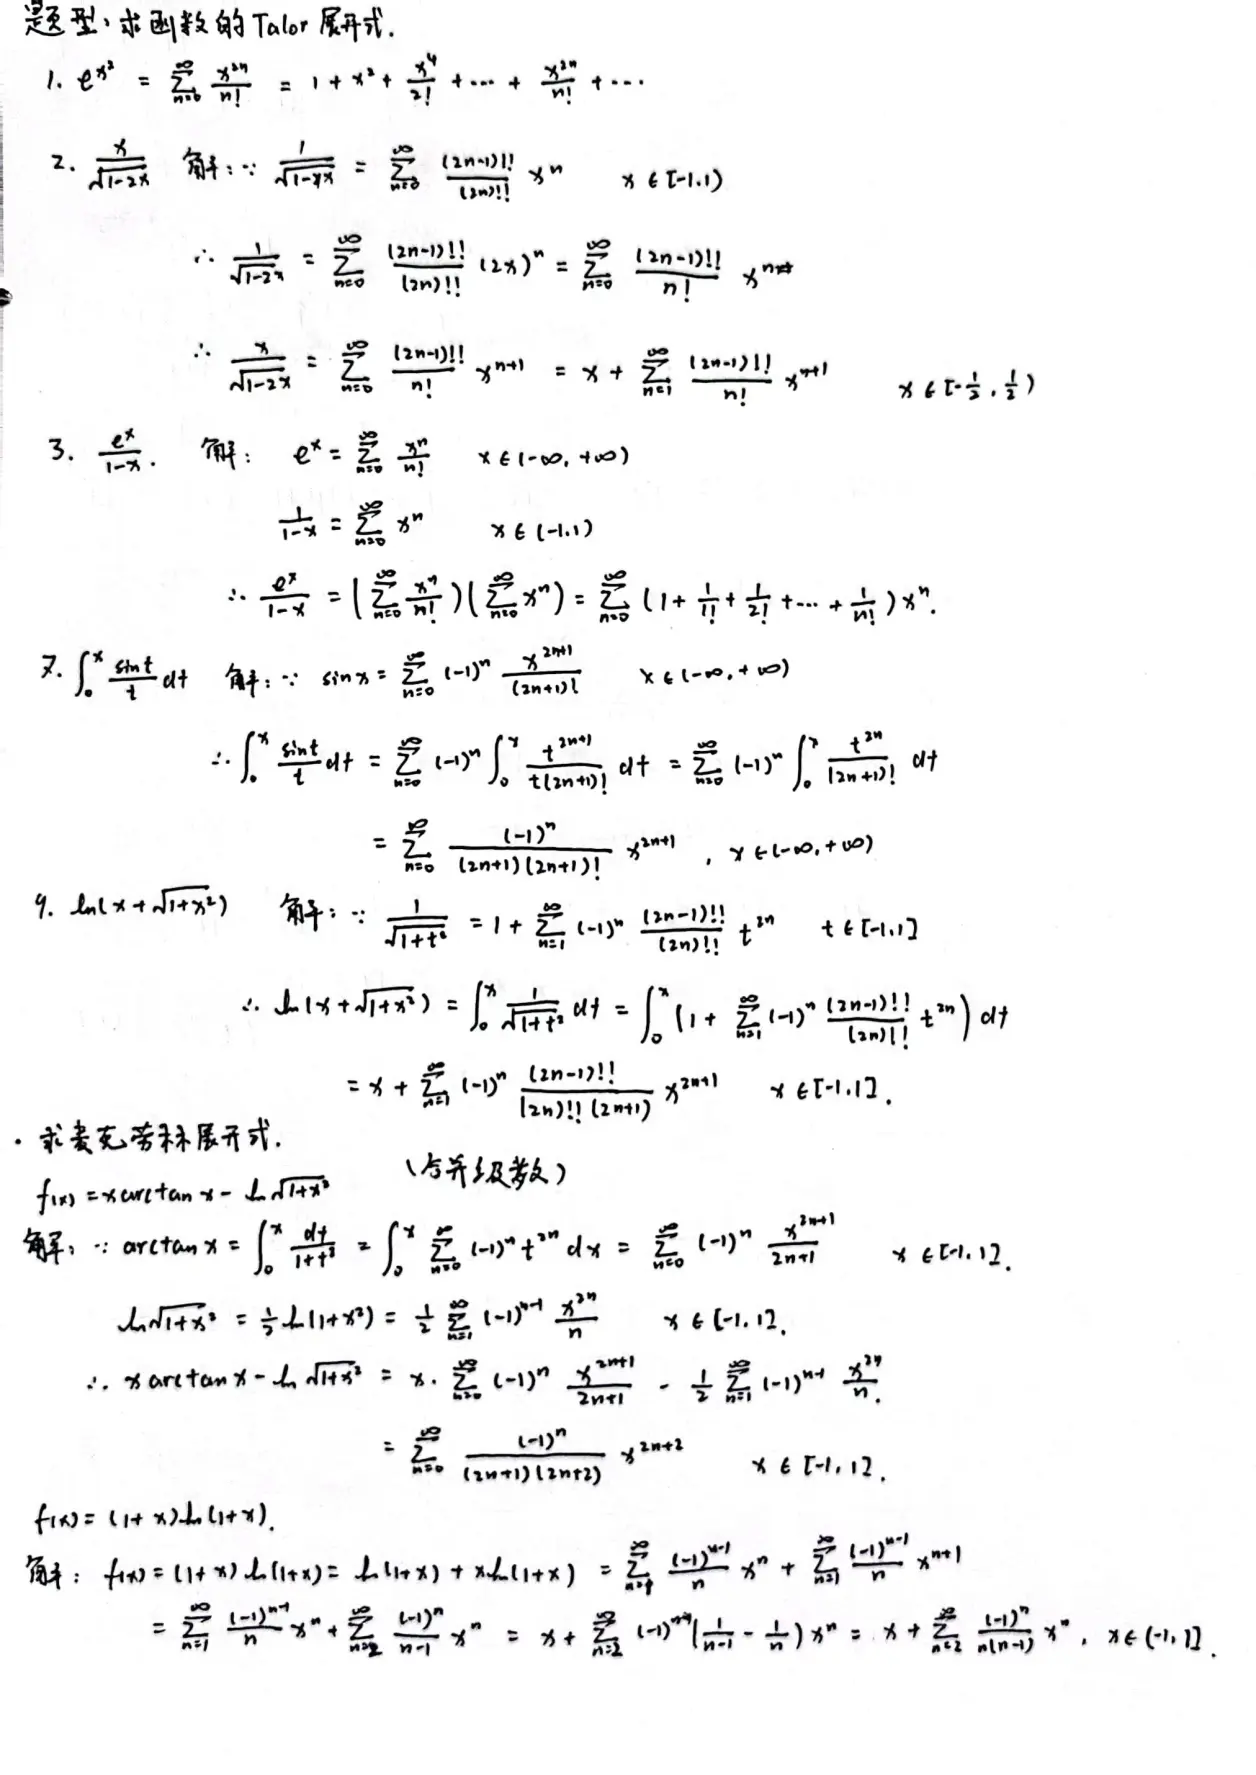 题型:求函数的Talor展开式.
1. e^{x²} = ∑_{n=0}^{∞} x^{2n}/n! = 1 + x² + x⁴/2! + ··· + x^{2n}/n! + ···
2. x/√(1-2x) 解: ∵ 1/√(1-x) = ∑_{n=0}^{∞} (2n-1)!!/(2n)!! xⁿ x∈[-1,1)
∴ 1/√(1-2x) = ∑_{n=0}^{∞} (2n-1)!!/(2n)!! (2x)ⁿ = ∑_{n=0}^{∞} (2n-1)!!/n! xⁿ
∴ x/√(1-2x) = ∑_{n=0}^{∞} (2n-1)!!/n! x^{n+1} = x + ∑_{n=1}^{∞} (2n-1)!!/n! x^{n+1} x∈[-1/2, 1/2)
3. e^x/(1-x). 解: e^x = ∑_{n=0}^{∞} xⁿ/n! x∈(-∞, +∞)
1/(1-x) = ∑_{n=0}^{∞} xⁿ x∈(-1,1)
∴ e^x/(1-x) = (∑_{n=0}^{∞} xⁿ/n!)(∑_{n=0}^{∞} xⁿ) = ∑_{n=0}^{∞} (1 + 1/1! + 1/2! + ··· + 1/n!) xⁿ.
7. ∫_0^x sint/t dt 解: ∵ sinx = ∑_{n=0}^{∞} (-1)ⁿ x^{2n+1}/(2n+1)! x∈(-∞, +∞)
∴ ∫_0^x sint/t dt = ∑_{n=0}^{∞} (-1)ⁿ ∫_0^x t^{2n+1}/(t(2n+1)!) dt = ∑_{n=0}^{∞} (-1)ⁿ ∫_0^x t^{2n}/(2n+1)! dt
= ∑_{n=0}^{∞} (-1)ⁿ/((2n+1)(2n+1)!) x^{2n+1}, x∈(-∞, +∞)
9. ln(x+√(1+x²)) 解: ∵ 1/√(1+t²) = 1 + ∑_{n=1}^{∞} (-1)ⁿ (2n-1)!!/(2n)!! t^{2n} t∈[-1,1]
∴ ln(x+√(1+x²)) = ∫_0^x 1/√(1+t²) dt = ∫_0^x (1 + ∑_{n=1}^{∞} (-1)ⁿ (2n-1)!!/(2n)!! t^{2n}) dt
= x + ∑_{n=1}^{∞} (-1)ⁿ (2n-1)!!/((2n)!!(2n+1)) x^{2n+1} x∈[-1,1].
· 求麦克劳林展开式.
f(x) = x arctan x - ln√(1+x²) (合并级数)
解: ∵ arctan x = ∫_0^x dt/(1+t²) = ∫_0^x ∑_{n=0}^{∞} (-1)ⁿ t^{2n} dx = ∑_{n=0}^{∞} (-1)ⁿ x^{2n+1}/(2n+1) x∈[-1,1].
ln√(1+x²) = 1/2 ln(1+x²) = 1/2 ∑_{n=1}^{∞} (-1)^{n-1} x^{2n}/n x∈[-1,1].
∴ x arctan x - ln√(1+x²) = x·∑_{n=0}^{∞} (-1)ⁿ x^{2n+1}/(2n+1) - 1/2 ∑_{n=1}^{∞} (-1)^{n-1} x^{2n}/n.
= ∑_{n=0}^{∞} (-1)ⁿ/((2n+1)(2n+2)) x^{2n+2} x∈[-1,1].
f(x) = (1+x)ln(1+x).
解: f(x) = (1+x)ln(1+x) = ln(1+x) + xln(1+x) = ∑_{n=1}^{∞} (-1)^{n-1}/n xⁿ + ∑_{n=1}^{∞} (-1)^{n-1}/n x^{n+1}
= ∑_{n=1}^{∞} (-1)^{n-1}/n xⁿ + ∑_{n=2}^{∞} (-1)ⁿ/(n-1) xⁿ = x + ∑_{n=2}^{∞} (-1)ⁿ(1/(n-1) - 1/n) xⁿ = x + ∑_{n=2}^{∞} (-1)ⁿ/(n(n-1)) xⁿ, x∈(-1,1].